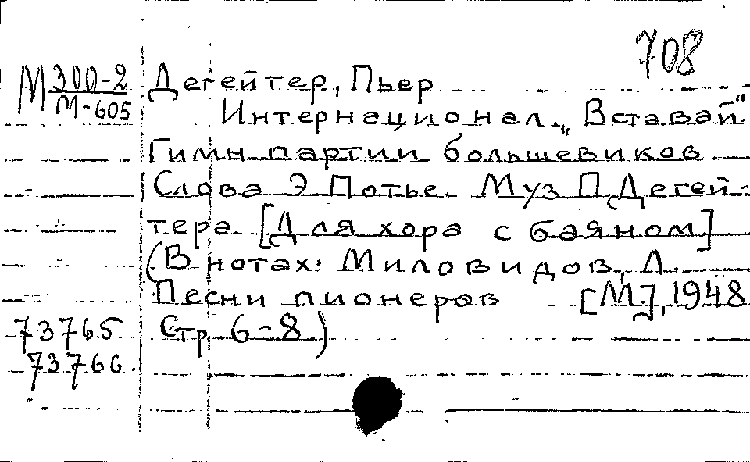 708
М 300-2 Дегейтер, Пьер
М-605 Интернационал „Вставай"
Гимн партии большевиков
Слова Э Потье. Муз П. Дегей-
тера. [Для хора с баяном]
(В нотах: Миловидов, Л.
Песни пионеров [М], 1948
73765 Стр 6-8)
73766